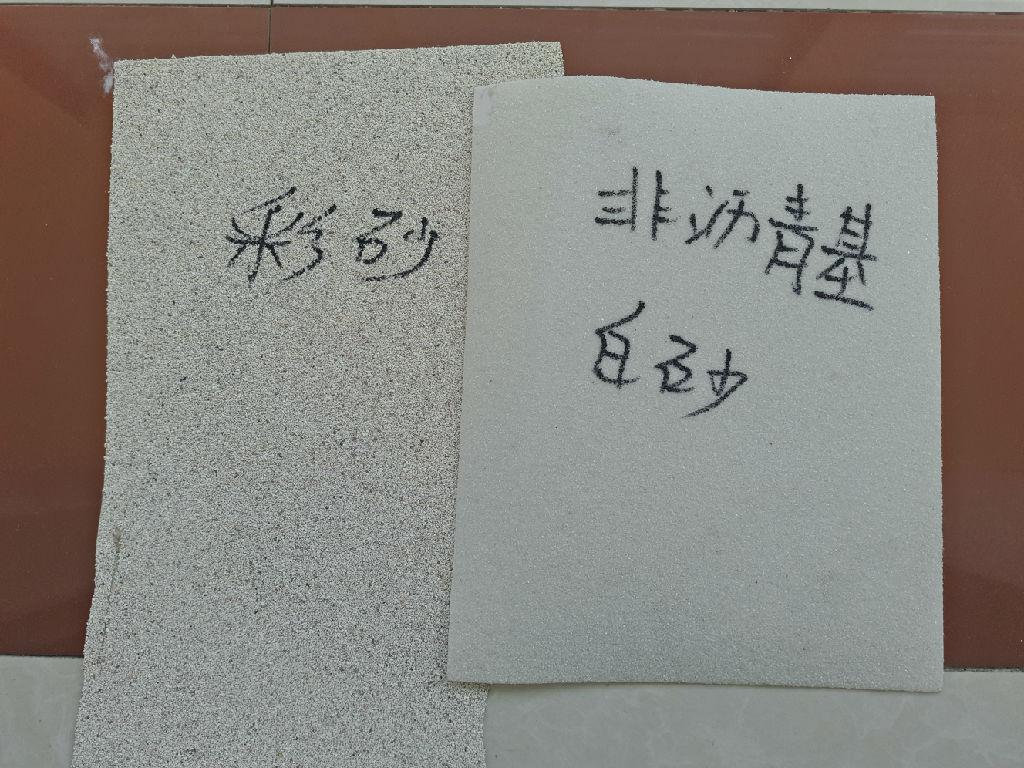 彩砂
非沥青基
白砂